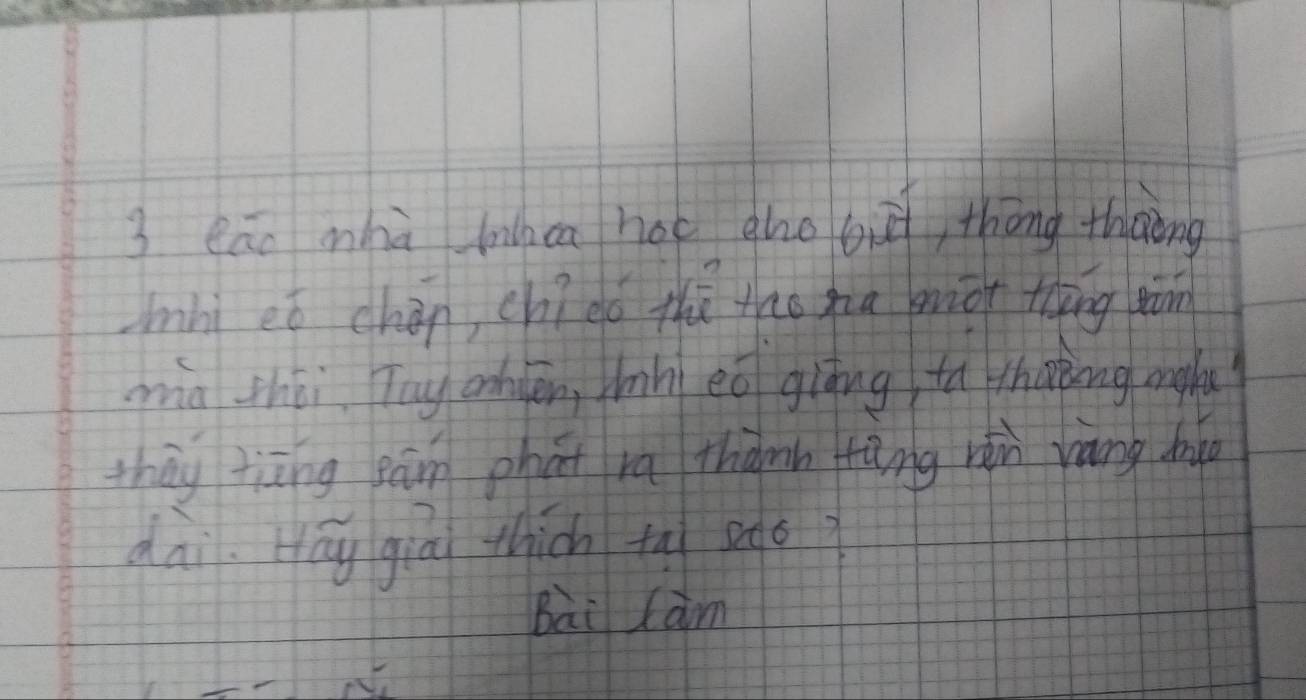 3 các nhà khoa học cho biết, thông thường
khi có chớp, chỉ có thể tạo ra một tiếng sấm
mà thôi. Tuy nhiên, khi có giông, ta thường nghe
thấy tiếng sấm phát ra thành từng rền vàng kéo
dài. Hãy giải thích tại sao?
Bài làm